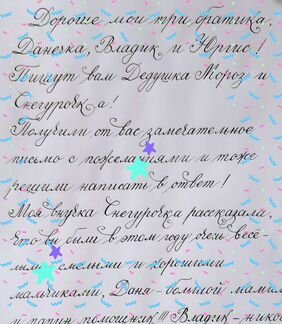 Дорогие мои три братика,
Данечка, Владик и Юргис!
Пишут вам Дедушка Мороз и
Снегурочка!
Получили от вас замечательное
письмо с пожеланиями и тоже
решили написать в ответ!
Моя внучка Снегурочка рассказала,
что вы были в этом году очень весё-
лыми смелыми и хорошими
мальчиками, Даня - большой мамин
и папин помощник!!! Владик -